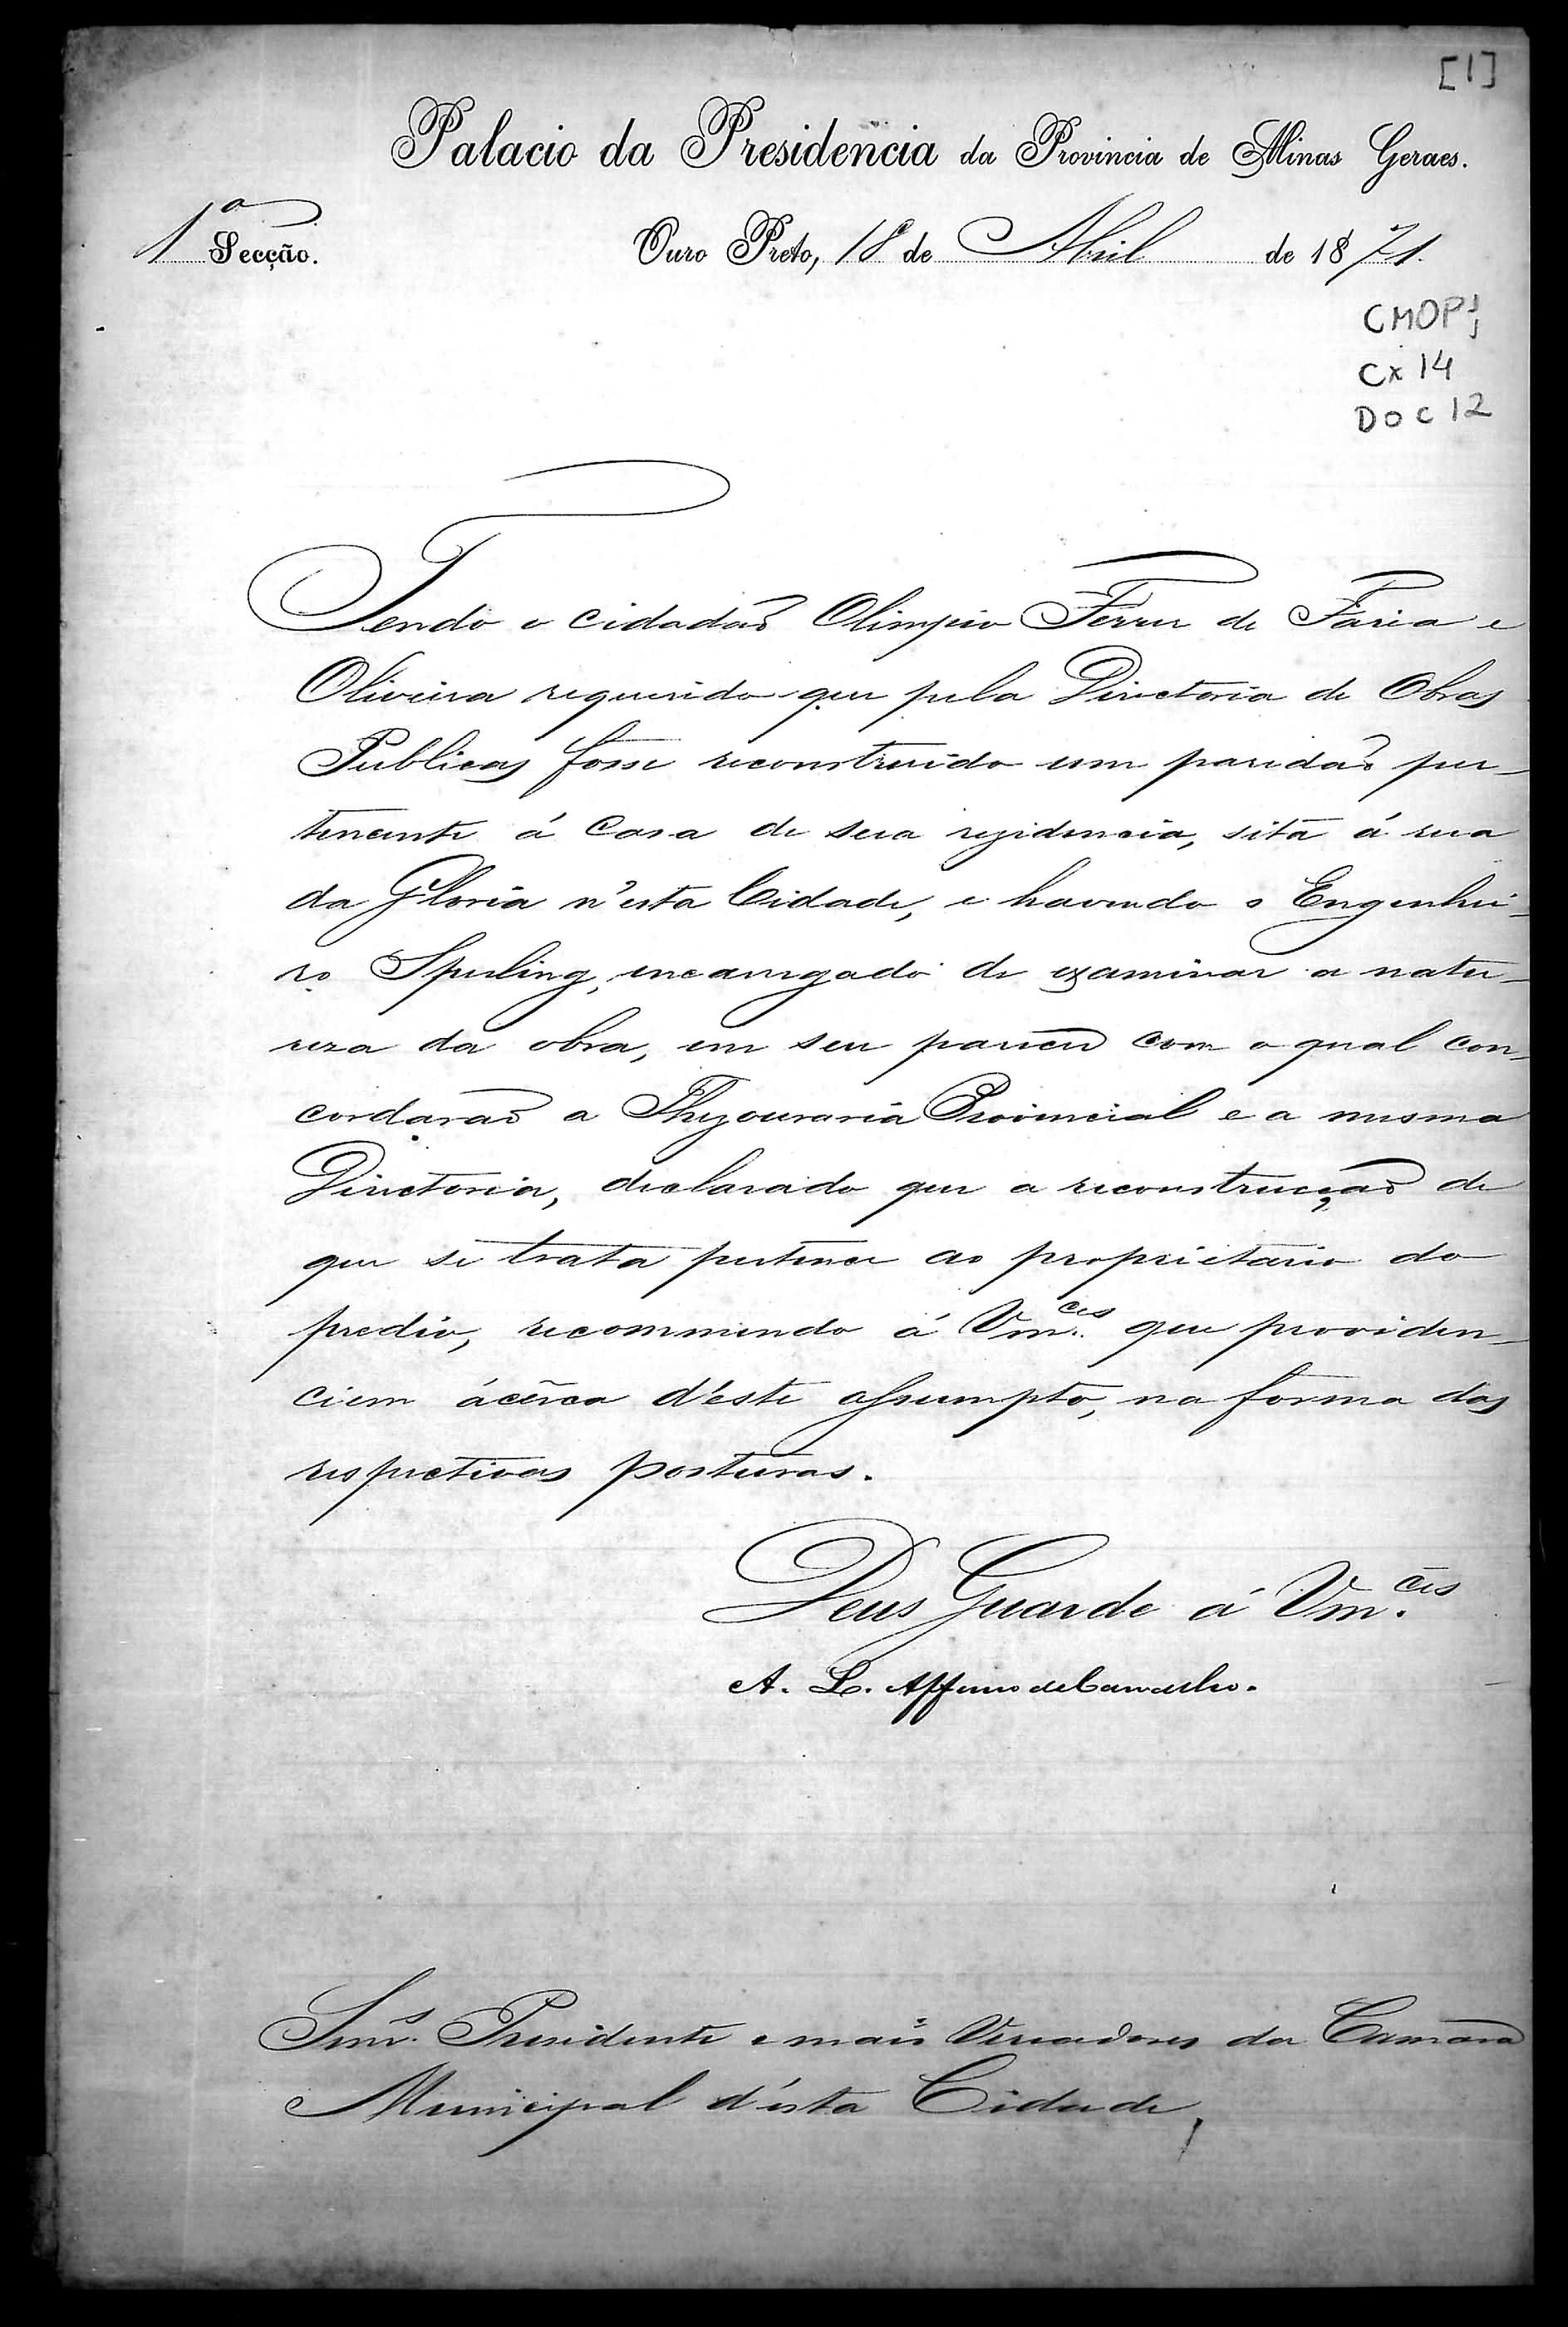 [1]
Palacio da Presidencia da Provincia de Minas Geraes.
1ª Secção.
Ouro Preto, 18 de Abril de 1871.
CMOP
Cx 14
DOC 12
Tendo o cidadão Olimpio Ferrer de Faria e
Oliveira requerido que pela Directoria de Obras
Publicas fosse reconstruido um paredão per-
tencente á casa de sua rezidencia, sita á rua
da Gloria n'esta Cidade, e havendo o Engenhei-
ro Sperling, encarregado de examinar a natu-
reza da obra, em seu parecer com o qual con-
cordarão a Thezouraria Provincial e a mesma
Directoria, declarado que a reconstrucção de
que se trata pertence ao proprietario do
predio, recommendo á Vm.ces que providen-
ciem ácerca d'este assumpto, na forma das
respectivas posturas.
Deus Guarde á Vm.ces
A. L. Affonso de Carvalho.
Snr.s Presidente e mais Vereadores da Camara
Municipal d'esta Cidade,